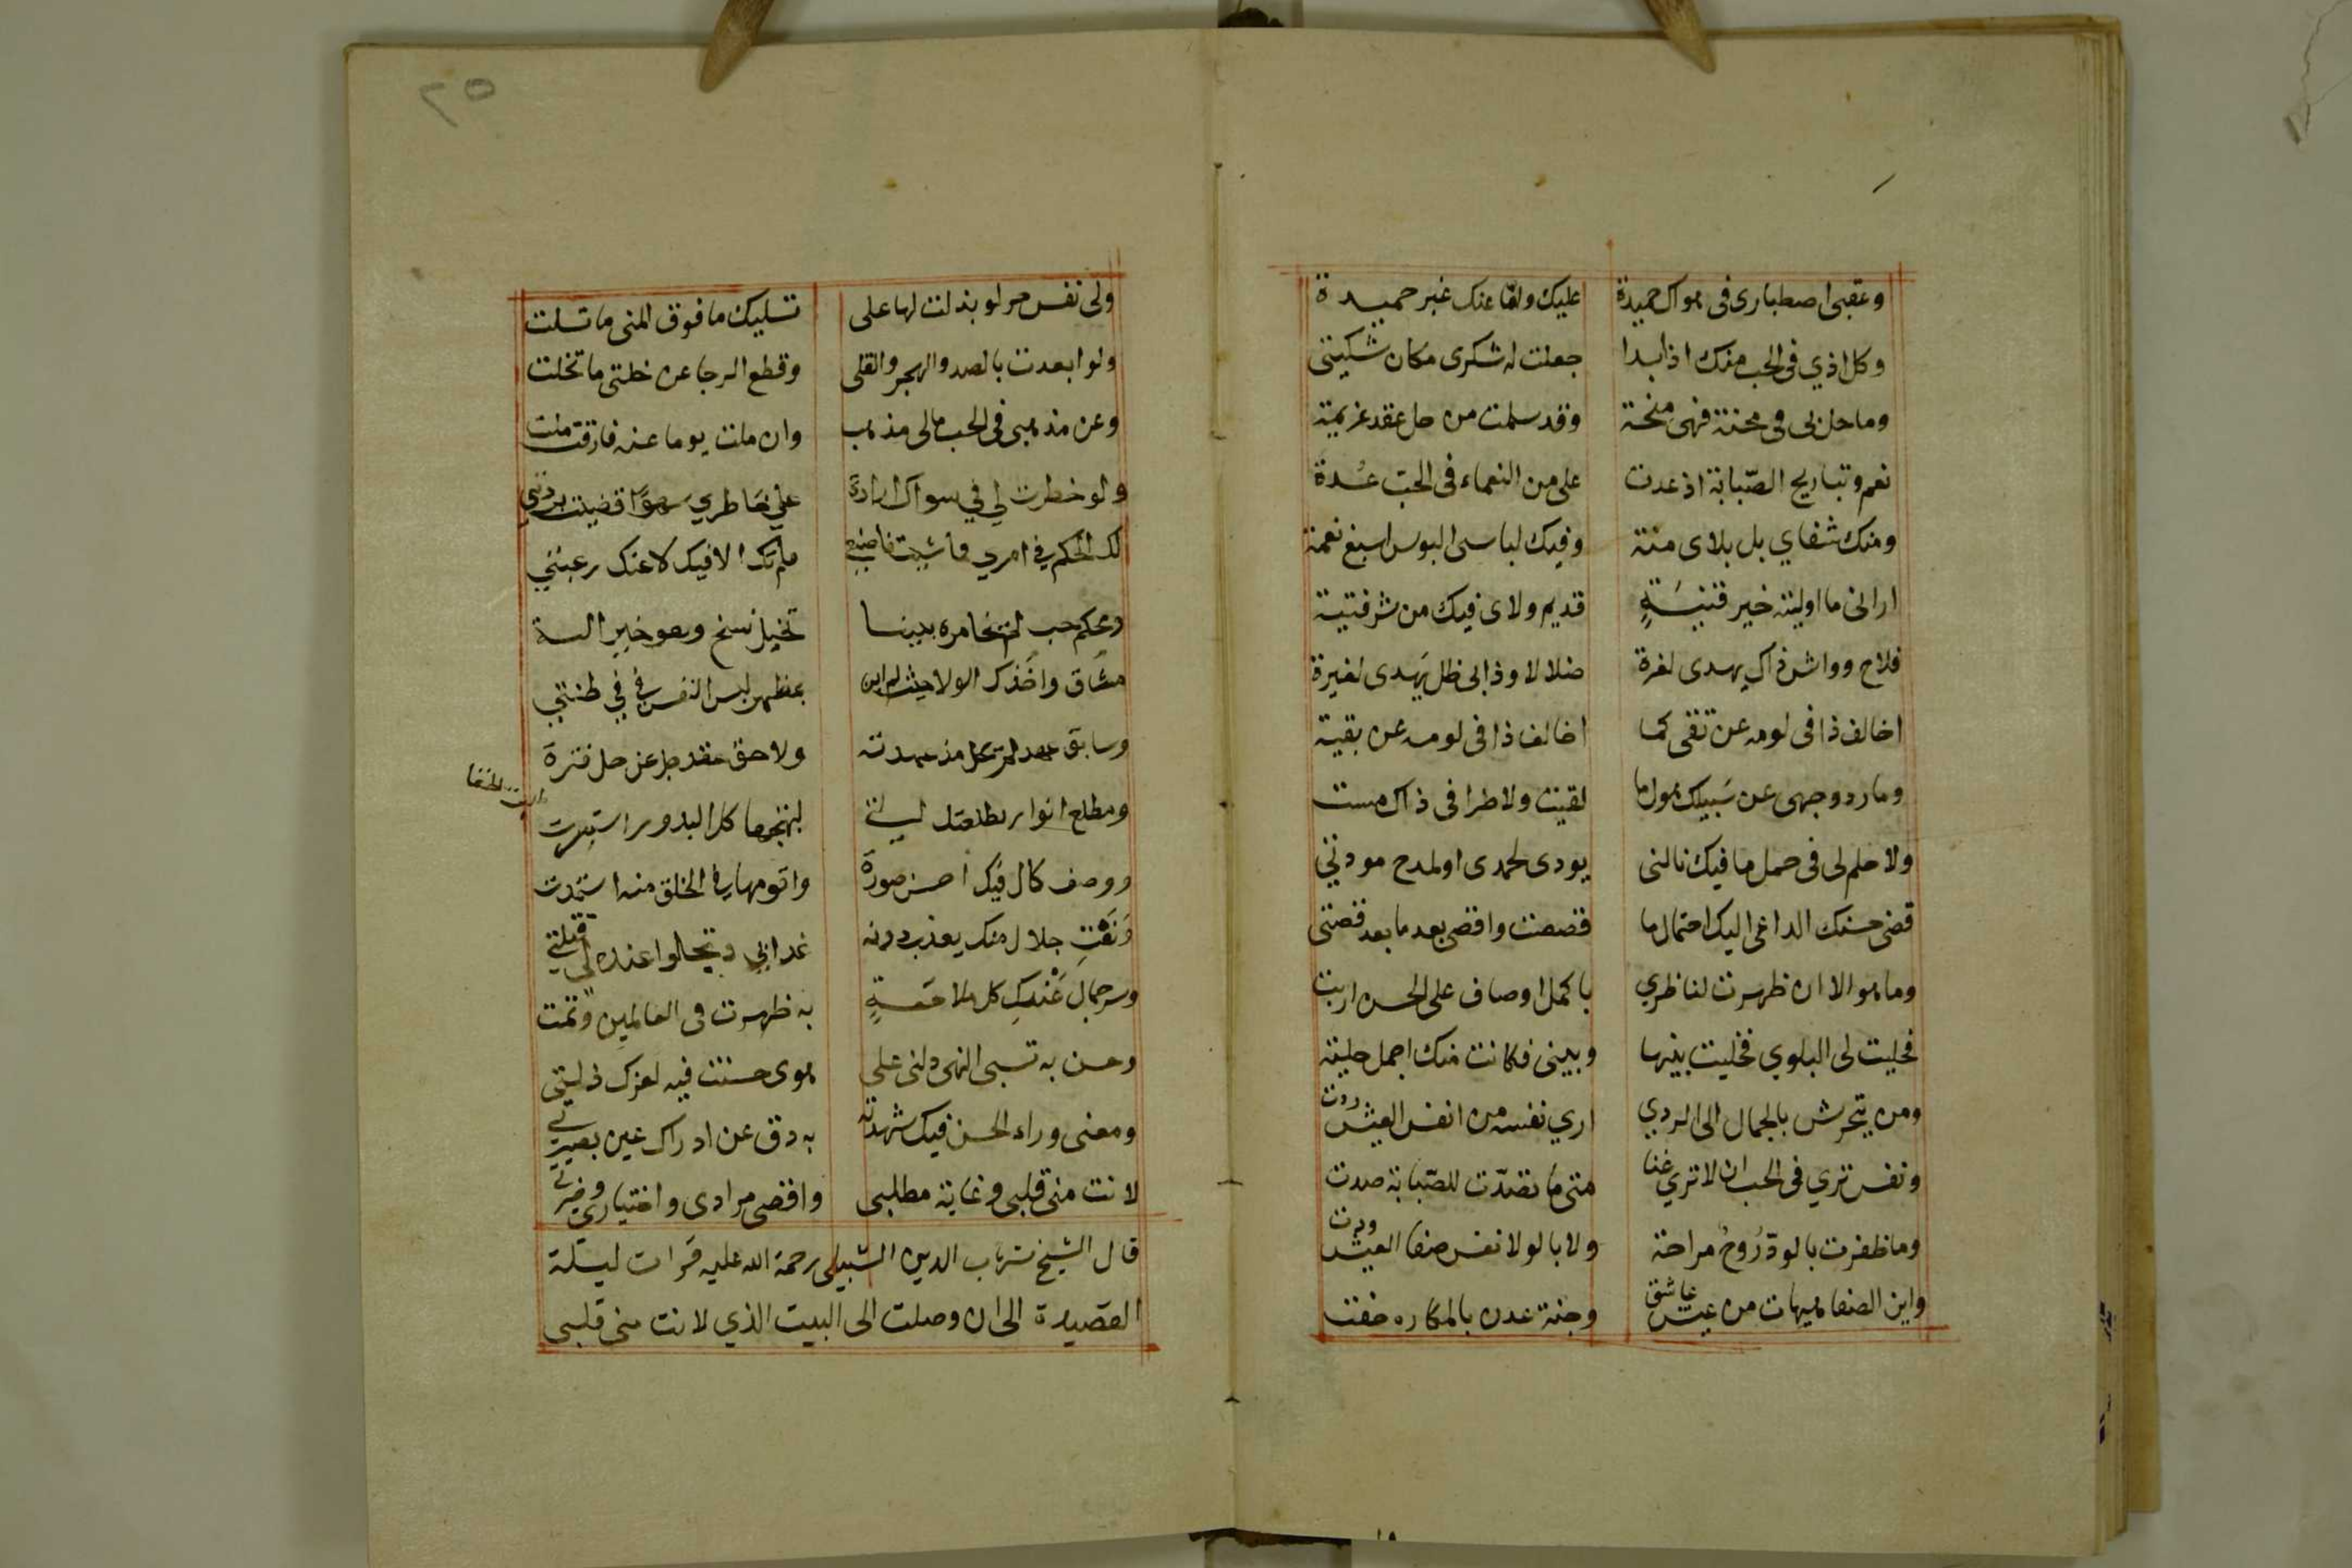 وعقبى اصطبارى فى هواك حميدة عليك ولكنّا عنك غير حميدة
وكل اذي فى الحب منك اذا بدا جعلت له شكرى مكان شكيتى
وما حل بى فى محنة فهى منحة وقد سلمت من حل عقد عزيمة
نعم وتباريح الصّبابة اذ عدت على من النعماء فى الحبّ عُدة
ومنك شقاي بل بلاى منة وفيك لباسى البوس اسبغ نعمة
ارانى ما اوليته خير قنيَةٍ قديم ولاى فيك من شر فتية
فلاح وواش ذاك يهدى لغرة ضلالا وذا بى ظل يَهدى لغيرة
اخالف ذا فى لومه عن تقى كما اخالف ذا فى لومه عن بقية
وما رد وجهى عن سَبيلك هول ما لقيت ولا ضرا فى ذاك مست
ولا حلم لى فى حمل ما فيك نالنى يودى لحمدى او لمدح مودتي
قضى حسنك الداعى اليك احتمال ما قصصت واقصى بعد ما بعد قصتى
وما هو الا ان ظهرت لناظري باكمل اوصاف على الحسن اربت
فحليت لى البلوي فخليت بينها وبينى فكانت منك اجمل حلية
ومن يتحرش بالجمال الى الردي اري نفسه من انفس العيش ردت
ونفس تري فى الحب ان لا تري عنا متى ما تصدّت للصّبابة صدت
وما ظفرت بالود رُوحٌ مراحة ولا بالولا نفس صفا العيش ودت
واين الصفا هيهات من عيش عاشق وجنة عدن بالمكاره حفت
٢٥
ولى نفس حر لو بذلت لها على تسليك ما فوق المنى ما تسلت
ولو ابعدت بالصد والهجر والقلى وقطع الرجا عن خلتى ما تخلت
وعن مذهبى فى الحب مالى مذهب وان ملت يوما عنه فارقت ملت
ولو خطرت لي في سواك ارادة على خاطري سهوًا قضيت بردتي
لك الحكم في امري فما شيت فاصنعي فلم تك الا فيك لا عنك رغبتي
ومحكم حب لم يخامره بيننا تخيل نسخ وهو خير الية
ميثاق واخذك الولا حيث لم ابن بمظهر لبس النفس في في طنتي
وسابق عهد لم يحل مذ عهدته ولاحق عقد جل عن حل فترة
ومطلع انوار بطلعتك التي لبهجتها كل البدور استسرت
ووصف كمال فيك احسن صورة واقومها في الخلق منه استمدت
وَنَعْتِ جلال منك يعذب دونه عذابي وتحلوا عنده لى قتلتي
وسر جمال عَنْكِ كل ملاحَةٍ به ظهرت فى العالمين وتمت
وحسن به تسبى النهى دلنى على هوى حسنت فيه لعزك ذلتي
ومعنى وراء الحسن فيك شهدته به دق عن ادراك عين بصيرتي
لانت منى قلبى وغاية مطلبى واقصى مرادى واختياري وخيرتي
قال الشيخ شهاب الدين الشبيلى رحمة الله عليه قرات ليلة
القصيدة الى ان وصلت الى البيت الذي لانت منى قلبى